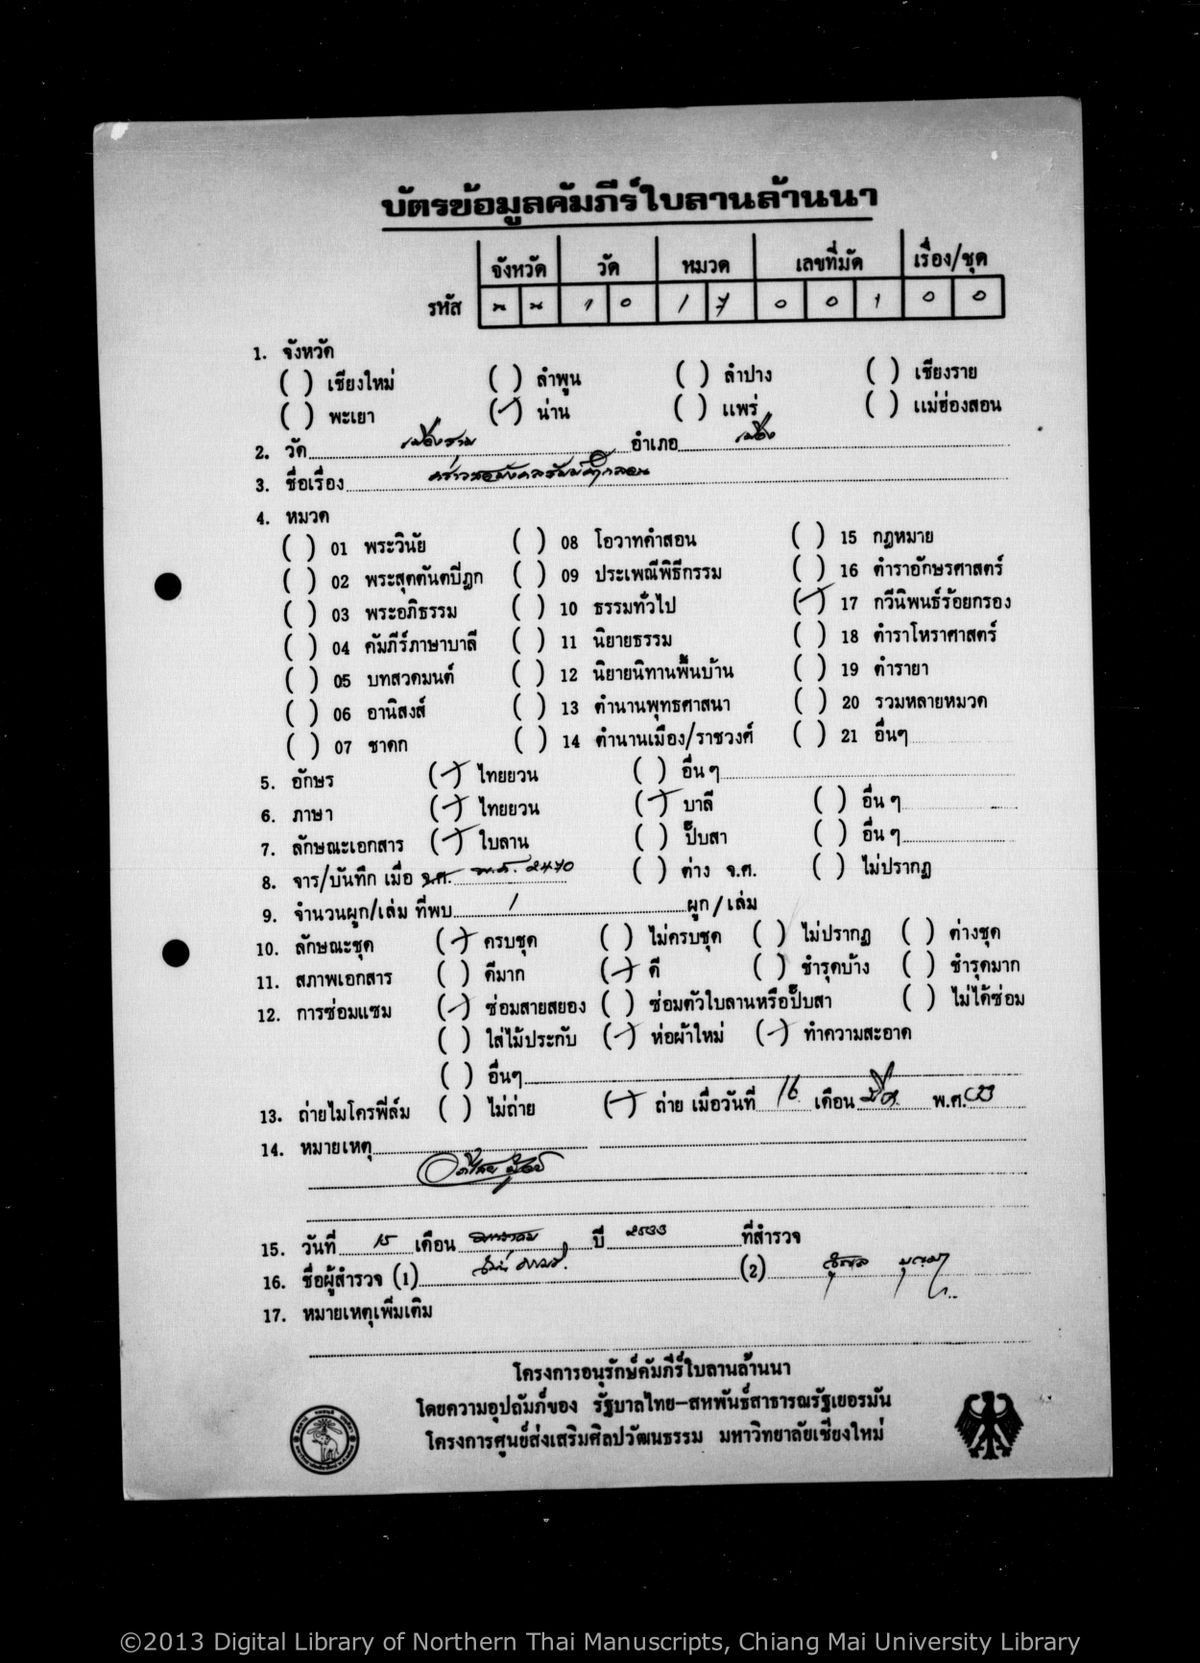 บัตรข้อมูลคัมภีร์ใบลานล้านนา
จังหวัด วัด หมวด เลขที่มัด เรื่อง/ชุด
รหัส ๑ ๐ 1 7 ๐ ๐ ๑ ๐ ๐
1. จังหวัด
( ) เชียงใหม่ ( ) ลำพูน ( ) ลำปาง ( ) เชียงราย
( ) พะเยา (✓) น่าน ( ) แพร่ ( ) แม่ฮ่องสอน
2. วัด เมืองราม อำเภอ เมือง
3. ชื่อเรื่อง
4. หมวด
( ) 01 พระวินัย ( ) 08 โอวาทคำสอน ( ) 15 กฎหมาย
( ) 02 พระสุตตันตปิฎก ( ) 09 ประเพณีพิธีกรรม ( ) 16 ตำราอักษรศาสตร์
( ) 03 พระอภิธรรม ( ) 10 ธรรมทั่วไป (✓) 17 กวีนิพนธ์ร้อยกรอง
( ) 04 คัมภีร์ภาษาบาลี ( ) 11 นิยายธรรม ( ) 18 ตำราโหราศาสตร์
( ) 05 บทสวดมนต์ ( ) 12 นิยายนิทานพื้นบ้าน ( ) 19 ตำรายา
( ) 06 อานิสงส์ ( ) 13 ตำนานพุทธศาสนา ( ) 20 รวมหลายหมวด
( ) 07 ชาดก ( ) 14 ตำนานเมือง/ราชวงศ์ ( ) 21 อื่นๆ
5. อักษร (✓) ไทยยวน ( ) อื่น ๆ
6. ภาษา (✓) ไทยยวน (✓) บาลี ( ) อื่น ๆ
7. ลักษณะเอกสาร (✓) ใบลาน ( ) ปั๊บสา ( ) อื่น ๆ
8. จาร/บันทึก เมื่อ จ.ศ. พ.ศ. 2470 ( ) ต่าง จ.ศ. ( ) ไม่ปรากฏ
9. จำนวนผูก/เล่ม ที่พบ 1 ผูก/เล่ม
10. ลักษณะชุด (✓) ครบชุด ( ) ไม่ครบชุด ( ) ไม่ปรากฏ ( ) ต่างชุด
11. สภาพเอกสาร ( ) ดีมาก (✓) ดี ( ) ชำรุดบ้าง ( ) ชำรุดมาก
12. การซ่อมแซม (✓) ซ่อมสายสยอง ( ) ซ่อมตัวใบลานหรือปั๊บสา ( ) ไม่ได้ซ่อม
( ) ใส่ไม้ประกับ (✓) ห่อผ้าใหม่ (✓) ทำความสะอาด
( ) อื่นๆ
13. ถ่ายไมโครฟิล์ม ( ) ไม่ถ่าย (✓) ถ่าย เมื่อวันที่ 16 เดือน พ.ศ. 33
14. หมายเหตุ
15. วันที่ 15 เดือน ปี ๒๕๓๓ ที่สำรวจ
16. ชื่อผู้สำรวจ (1) (2)
17. หมายเหตุเพิ่มเติม
โครงการอนุรักษ์คัมภีร์ใบลานล้านนา
โดยความอุปถัมภ์ของ รัฐบาลไทย-สหพันธ์สาธารณรัฐเยอรมัน
โครงการศูนย์ส่งเสริมศิลปวัฒนธรรม มหาวิทยาลัยเชียงใหม่
©2013 Digital Library of Northern Thai Manuscripts, Chiang Mai University Library